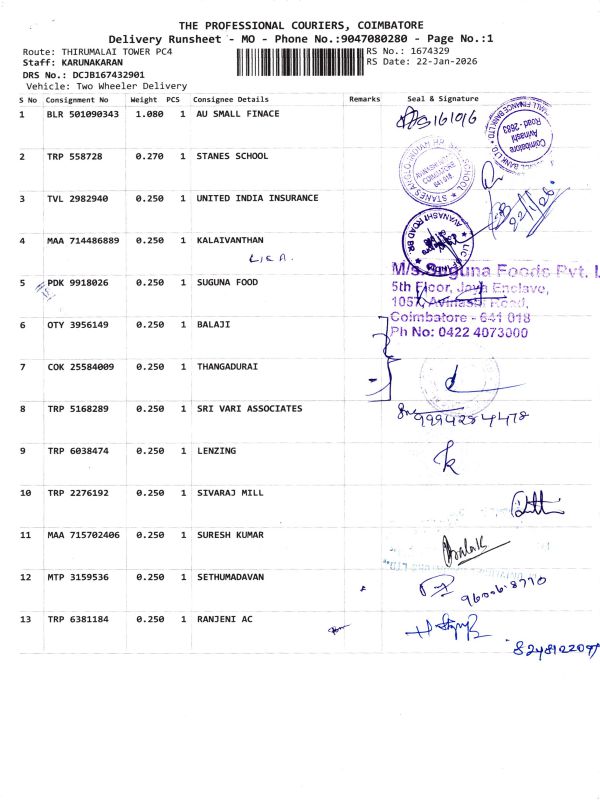 THE PROFESSIONAL COURIERS, COIMBATORE
Delivery Runsheet - MO - Phone No.:9047080280 - Page No.:1
Route: THIRUMALAI TOWER PC4
RS No.: 1674329
Staff: KARUNAKARAN
RS Date: 22-Jan-2026
DRS No.: DCJB167432901
Vehicle: Two Wheeler Delivery
S No Consignment No Weight PCS Consignee Details Remarks Seal & Signature
1 BLR 501090343 1.080 1 AU SMALL FINACE
2 TRP 558728 0.270 1 STANES SCHOOL
3 TVL 2982940 0.250 1 UNITED INDIA INSURANCE
22/1/26
4 MAA 714486889 0.250 1 KALAIVANTHAN
5 PDK 9918026 0.250 1 SUGUNA FOOD
M/s. Suguna Foods Pvt. L
5th Floor, Jaya Enclave,
1057, Avinashi Road,
Coimbatore - 641 018
Ph No: 0422 4073000
6 OTY 3956149 0.250 1 BALAJI
7 COK 25584009 0.250 1 THANGADURAI
8 TRP 5168289 0.250 1 SRI VARI ASSOCIATES
9994284478
9 TRP 6038474 0.250 1 LENZING
10 TRP 2276192 0.250 1 SIVARAJ MILL
11 MAA 715702406 0.250 1 SURESH KUMAR
12 MTP 3159536 0.250 1 SETHUMADAVAN
13 TRP 6381184 0.250 1 RANJENI AC